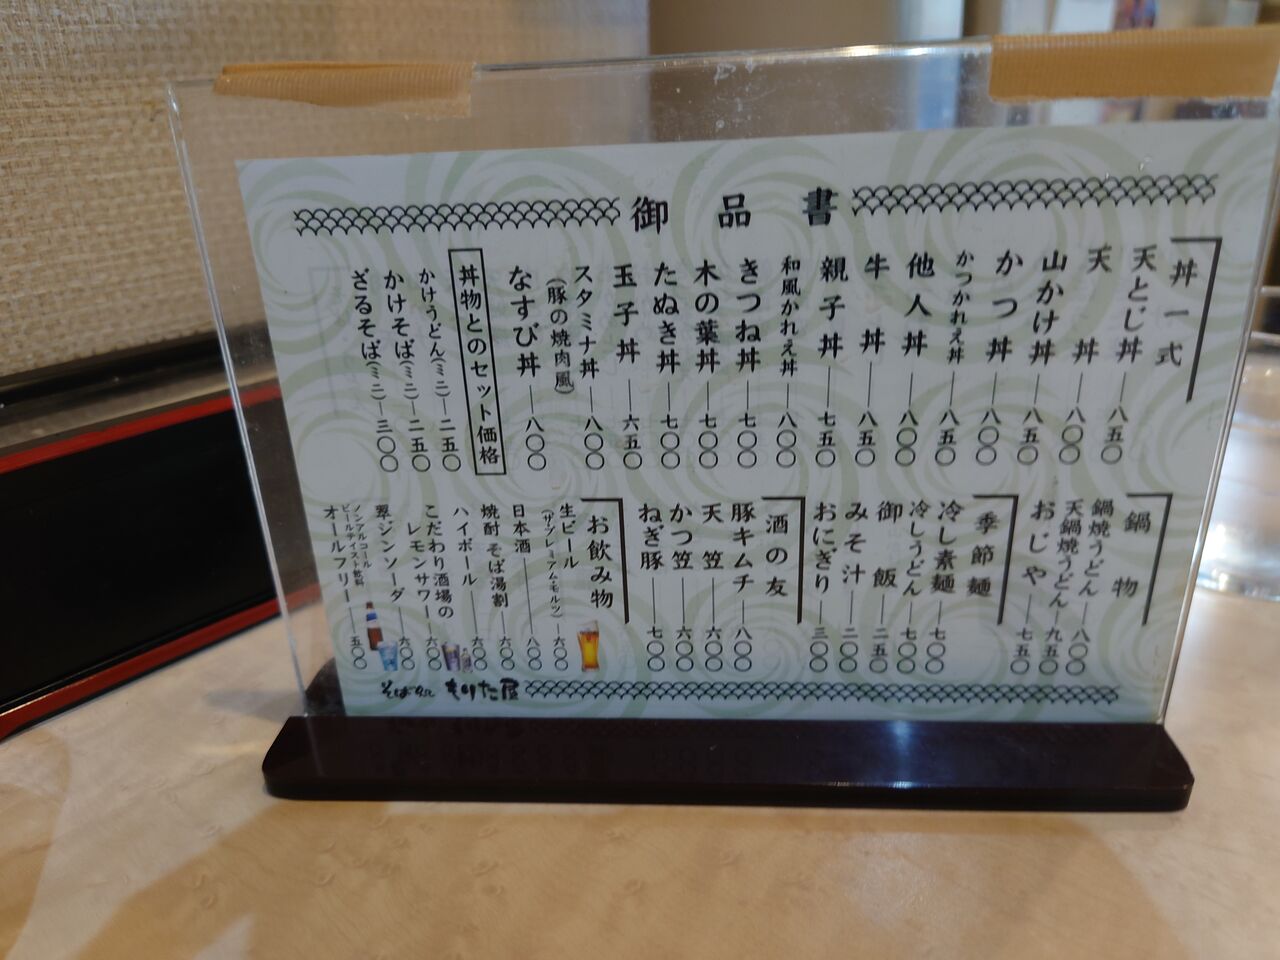 御品書
丼一式
天とじ丼 八五〇
天丼 八〇〇
山かけ丼 八五〇
かつ丼 八〇〇
かつかれえ丼 八五〇
他人丼 八〇〇
牛丼 八五〇
親子丼 七五〇
和風かれえ丼 八〇〇
きつね丼 七〇〇
木の葉丼 七〇〇
たぬき丼 七〇〇
玉子丼 六五〇
スタミナ丼 八〇〇
(豚の焼肉風)
なすび丼 八〇〇
丼物とのセット価格
かけうどん(ミニ) 二五〇
かけそば(ミニ) 二五〇
ざるそば(ミニ) 三〇〇
鍋物
鍋焼うどん 八〇〇
天鍋焼うどん 九五〇
おじや 七五〇
季節麺
冷し素麺 七〇〇
冷しうどん 七〇〇
御飯 二五〇
みそ汁 二〇〇
おにぎり 三〇〇
酒の友
豚キムチ 八〇〇
天笠 六〇〇
かつ笠 六〇〇
ねぎ豚 七〇〇
お飲み物
生ビール 六〇〇
(ザ・プレミアム・モルツ)
日本酒 八〇〇
焼酎 そば湯割 六〇〇
ハイボール 六〇〇
こだわり酒場の
レモンサワー 六〇〇
翠ジンソーダ 六〇〇
ノンアルコール
ビールテイスト飲料
オールフリー 五〇〇
そば処 もりた屋